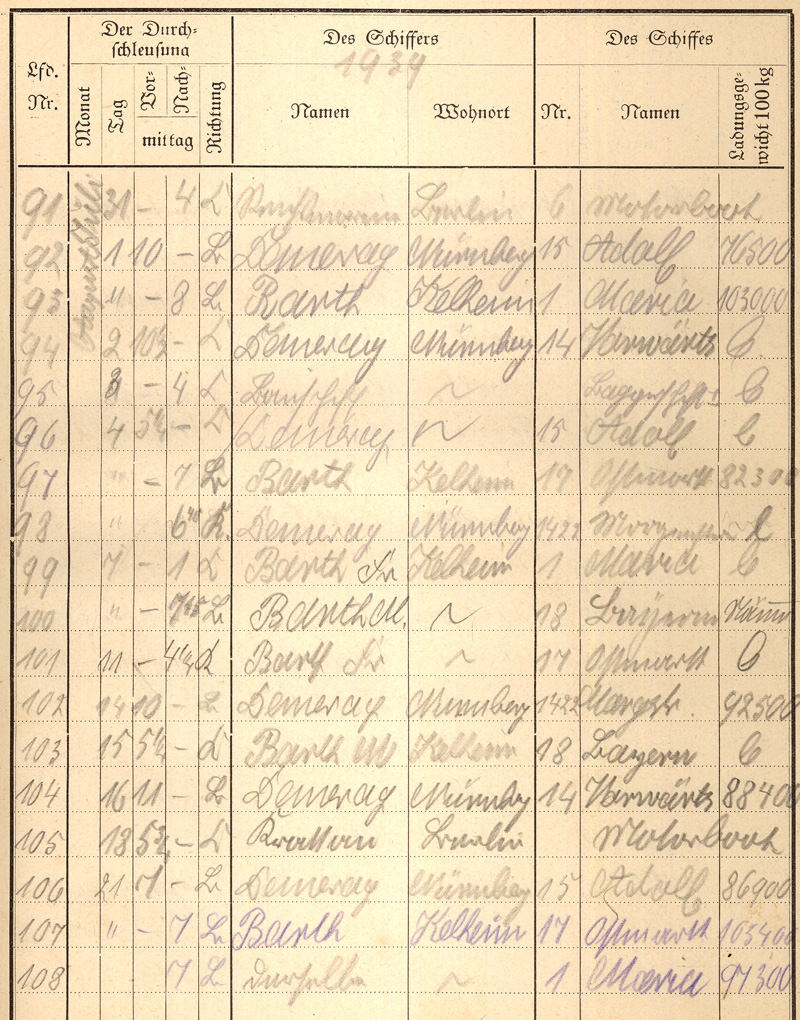 Der Durch-
schleusung
Des Schiffers
Des Schiffes
1939
Lfd.
Nr.
Monat
Tag
Vor-
Nach-
mittag
Richtung
Namen
Wohnort
Nr.
Namen
Ladungsge-
wicht 100 kg
91 Juli 31 – 4 Berlin 6 Motorboot
92 August 1 10 – Demerag Nürnberg 15 Adolf 76500
93 " – 8 Barth Kelheim 1 Maria 103000
94 2 10½ – Demerag Nürnberg 14 Vorwärts
95 3 – 4 ~
96 4 5½ – Demerag ~ 15 Adolf
97 " – 7 Barth Kelheim 17 Ostmark 82300
98 " 6 Demerag Nürnberg 1422
99 7 – 1 Barth Fr Kelheim 1 Maria
100 " – 7 Barth M. ~ 18 Bayern
101 11 – 4½ Barth Fr ~ 17 Ostmark
102 14 10 – Demerag Nürnberg 1422 92500
103 15 5½ – Barth M Kelheim 18 Bayern
104 16 11 – Demerag Nürnbg 14 Vorwärts 88400
105 18 5½ – Berlin Motorboot
106 21 7 – Demerag Nürnberg 15 Adolf 86900
107 " – 7 Barth Kelheim 17 Ostmark 103400
108 7 derselbe ~ 1 Maria 97300